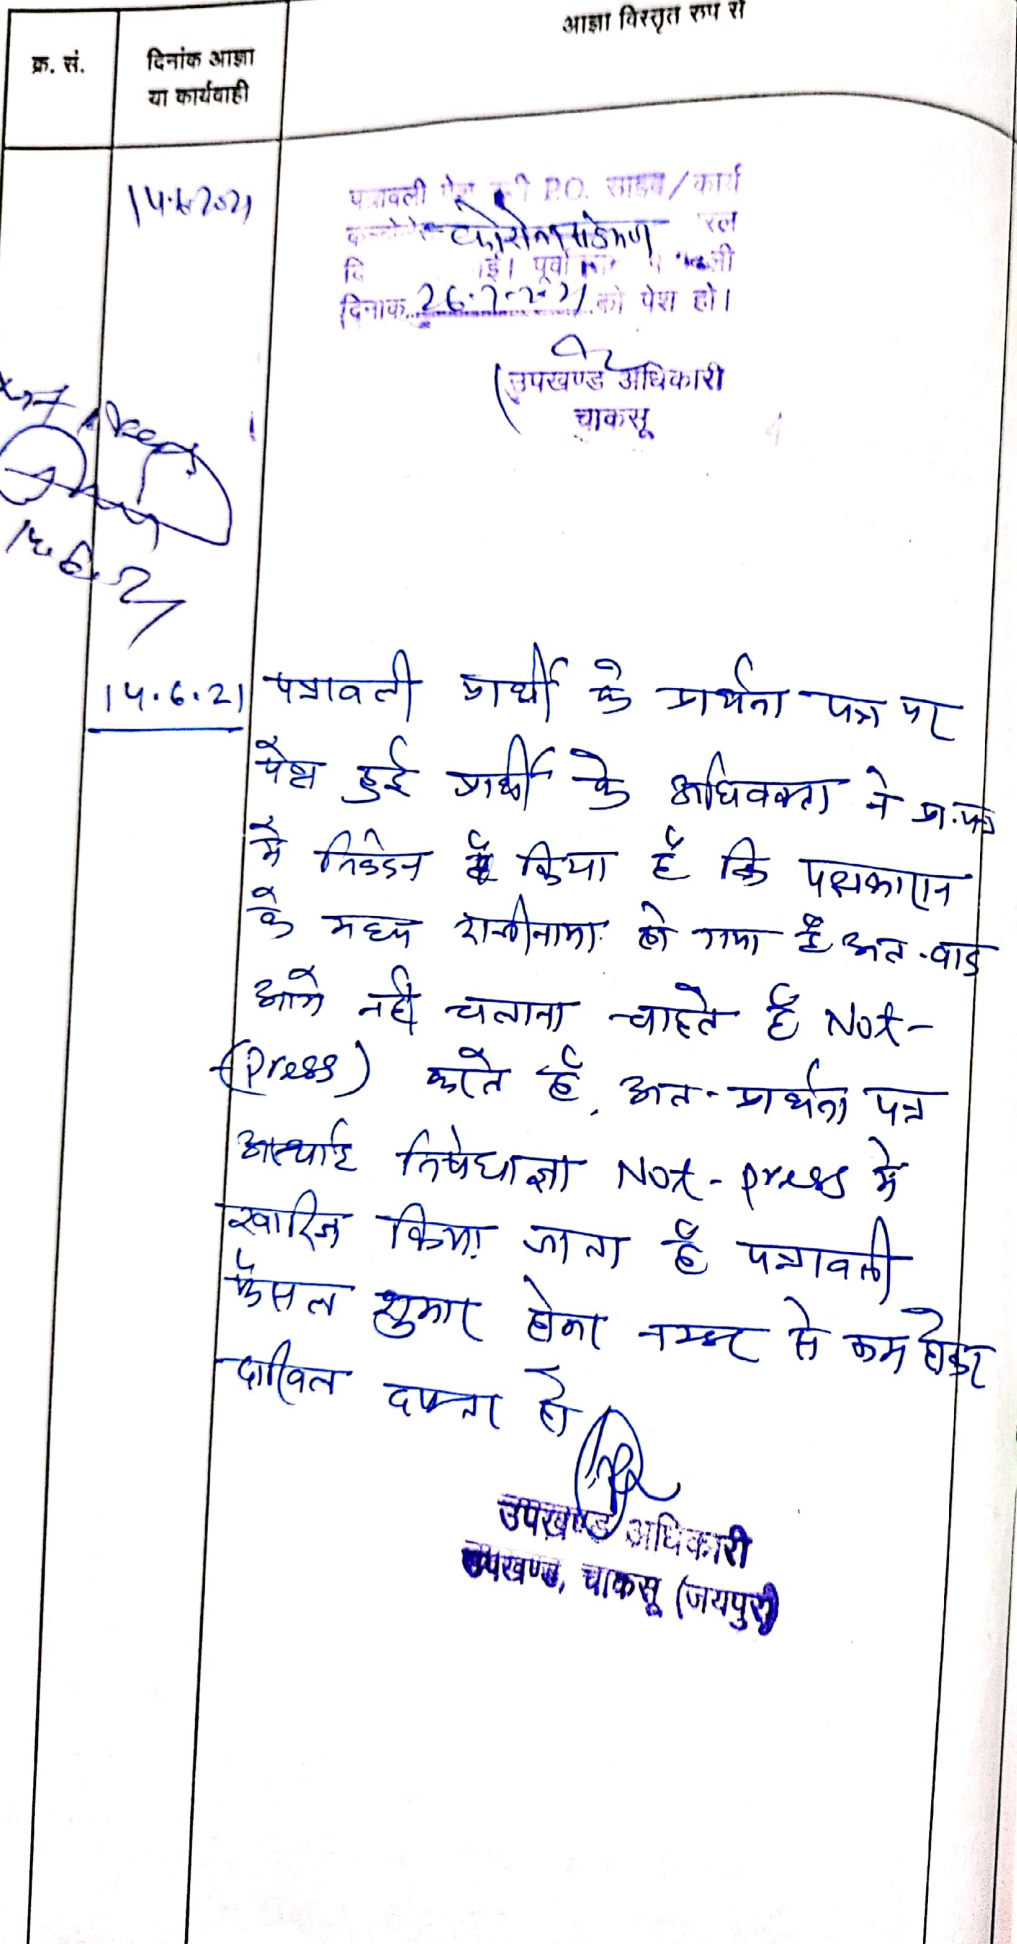 आज्ञा विस्तृत रूप से
क्र. सं.
दिनांक आज्ञा
या कार्यवाही
14.6.2021
पत्रावली पेश हुई P.O. साहब/कार्य
कोरोना संक्रमण
दिनांक 26.7.2021 को पेश हो।
उपखण्ड अधिकारी
चाकसू
14.6.21
14.6.21
पत्रावली प्रार्थी के प्रार्थना पत्र पर
पेश हुई प्रार्थी के अधिवक्ता ने प्रा.पत्र
मे निवेदन किया है कि पक्षकारान
के मध्य राजीनामा हो गया है अत. वाद
आगे नही चलाना चाहते है Not-
(press) करते है, अत. प्रार्थना पत्र
अस्थाई निषेधाज्ञा Not-press मे
खारिज किया जाता है पत्रावली
फैसल शुमार होकर नम्बर से कम होकर
दाखिल दफ्तर हो
उपखण्ड अधिकारी
उपखण्ड, चाकसू (जयपुर)